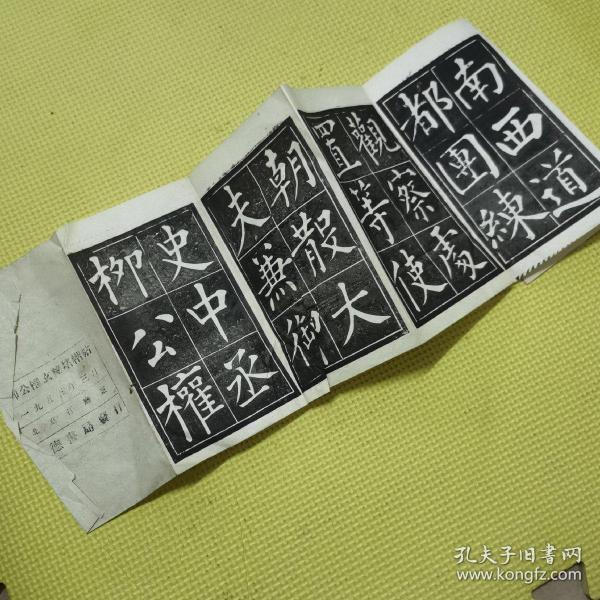 南西道
都團練
觀察處
置等使
朝散大
夫兼御
史中丞
柳公權
公權玄秘塔標帖
一九五
德書局發行
孔夫子旧書网
www.kongfz.com